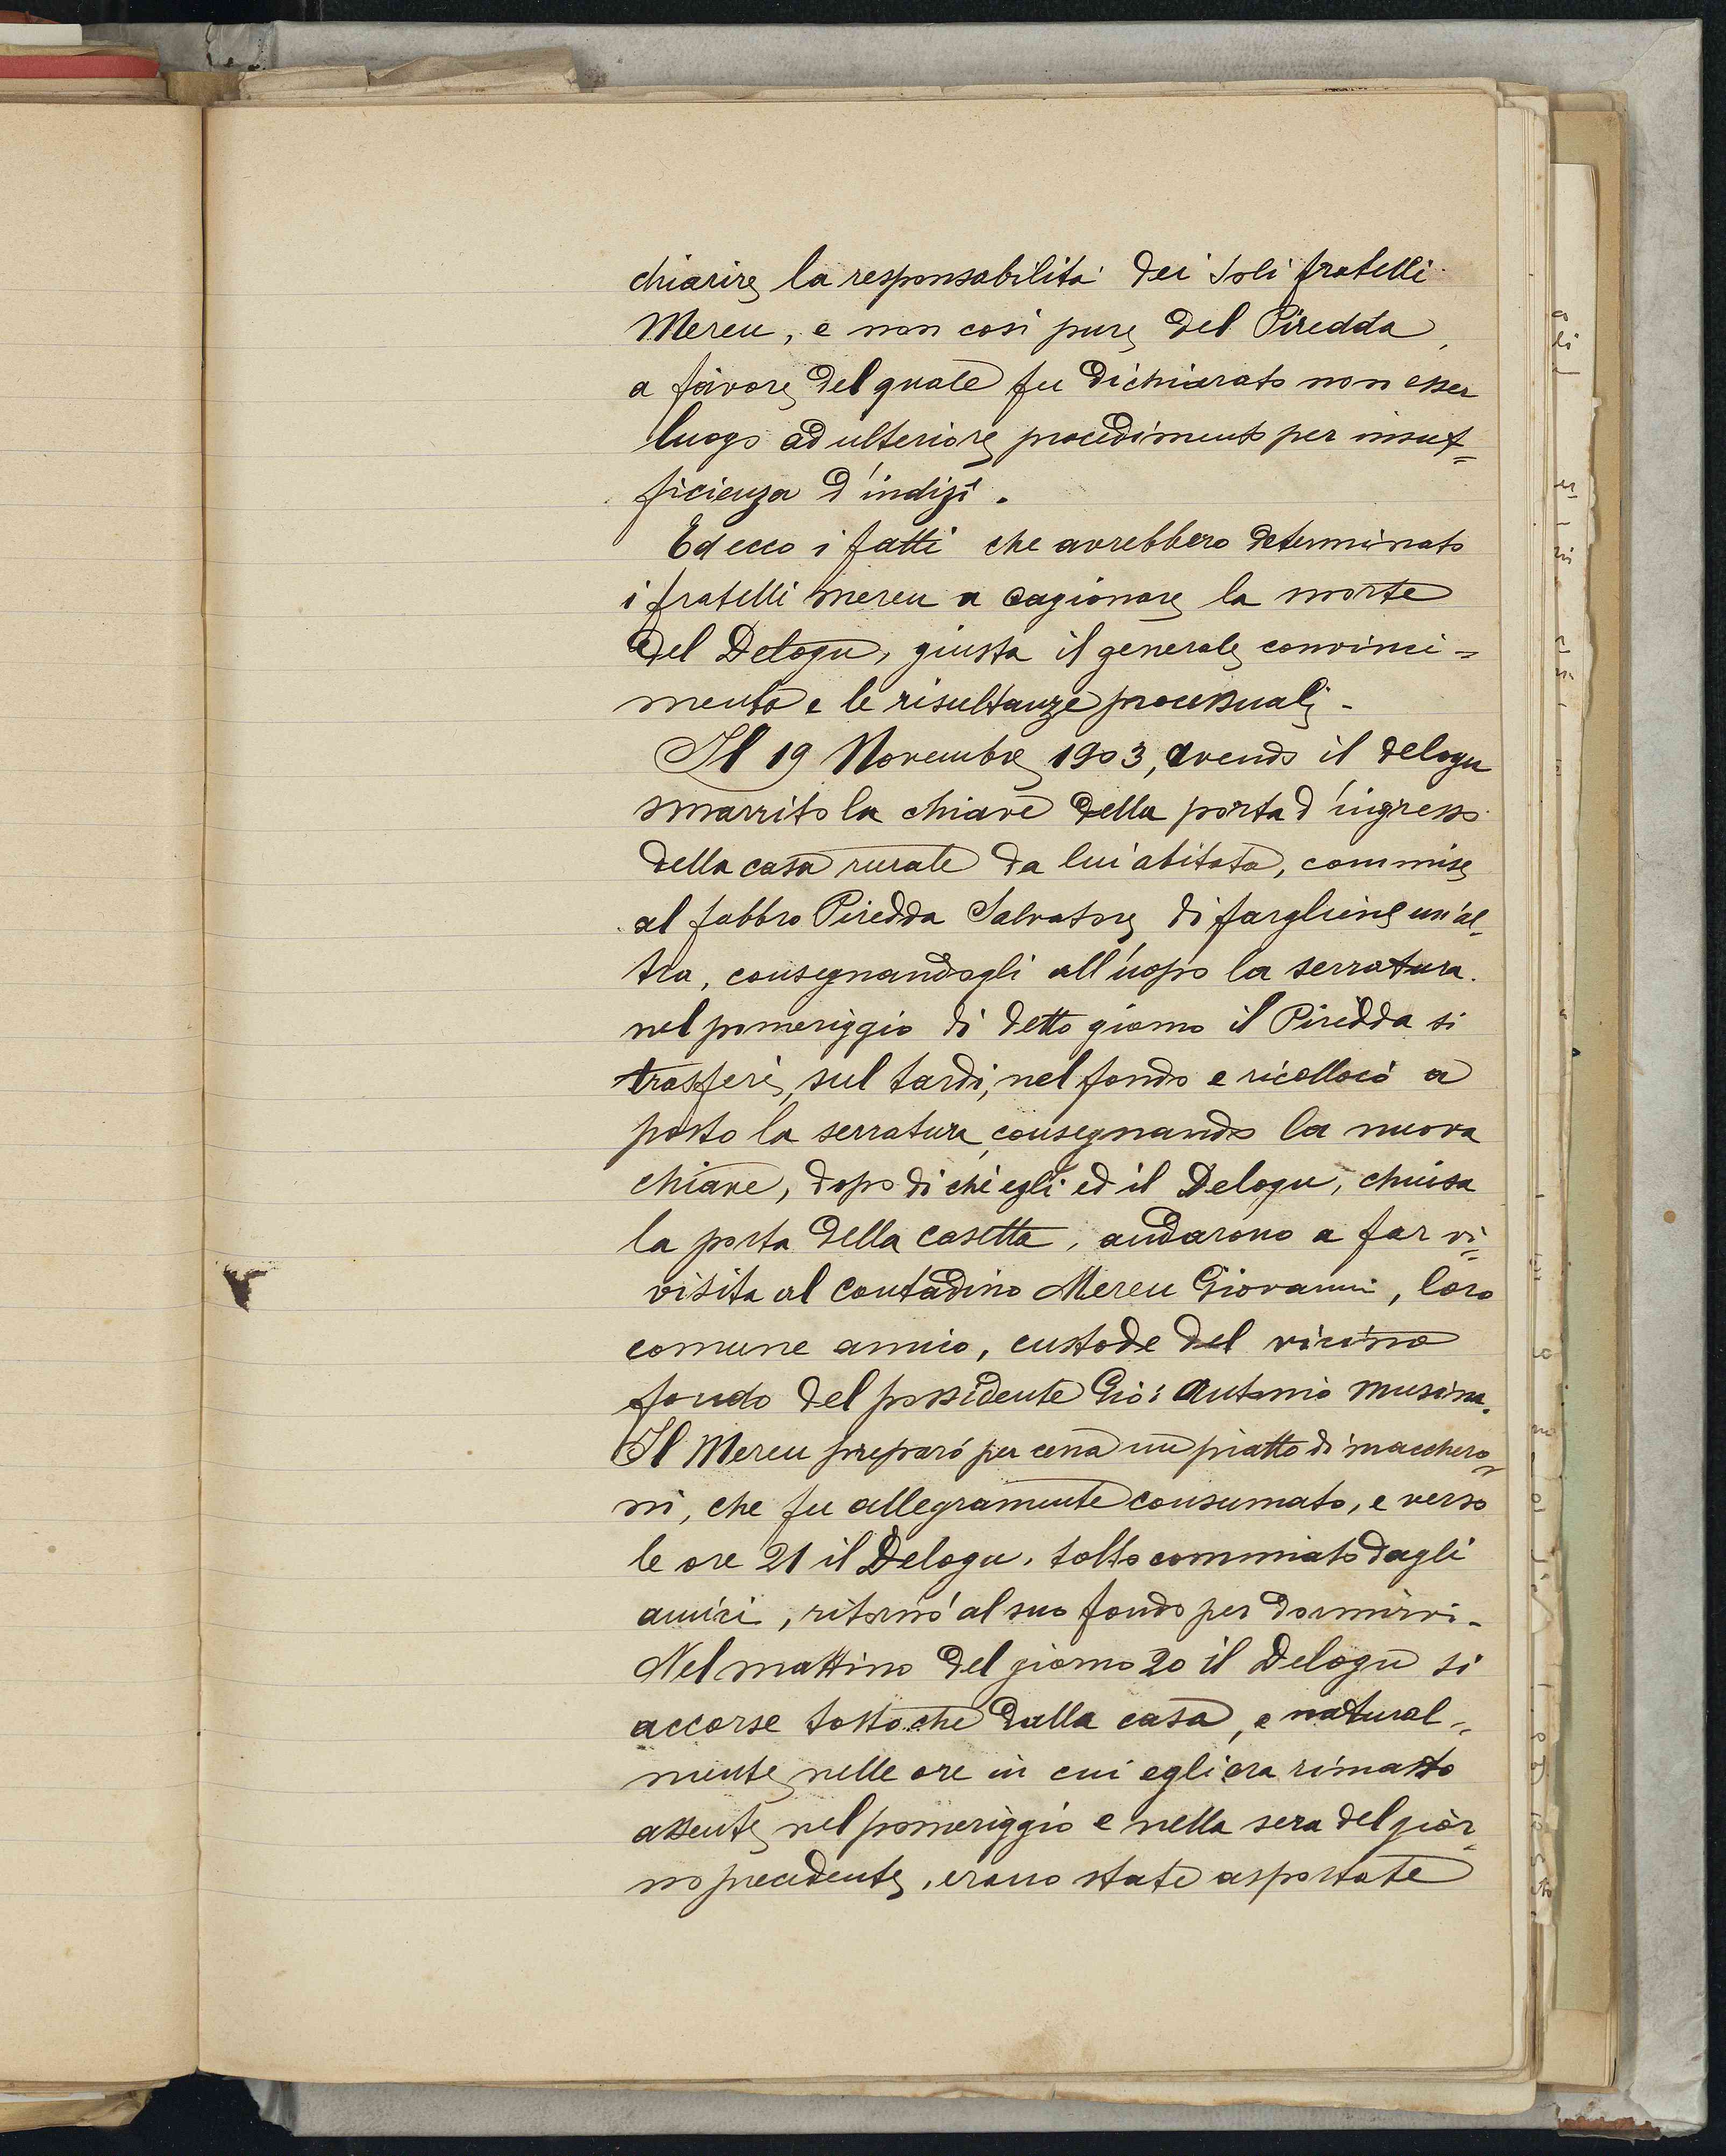 chiarire la responsabilità dei soli fratelli
Mereu, e non così pure del Piredda,
a favore del quale fu dichiarato non esser
luogo ad ulteriore procedimento per insuf=
ficienza d'indizî.
Ed ecco i fatti che avrebbero determinato
i fratelli Mereu a cagionare la morte
del Delogu, giusta il generale convinci=
mento e le risultanze processuali.
Il 19 Novembre 1903, avendo il Delogu
smarrito la chiave della porta d'ingresso
della casa rurale da lui abitata, commise
al fabbro Piredda Salvatore di fargliene un'al=
tra, consegnandogli all'uopo la serratura.
nel pomeriggio di detto giorno il Piredda si
trasferì, sul tardi, nel fondo e ricollocò a
posto la serratura, consegnando la nuova
chiave, dopo di chè egli ed il Delogu, chiusa
la porta della casetta, andarono a far vi=
visita al contadino Mereu Giovanni, loro
comune amico, custode del vicino
fondo del possidente Gio: Antonio Musina.
Il Mereu preparò per cena un piatto di macchero=
ni, che fu allegramente consumato, e verso
le ore 21 il Delogu, tolto commiato dagli
amici, ritornò al suo fondo per dormirvi.
Nel mattino del giorno 20 il Delogu si
accorse tosto che dalla casa, e natural=
mente nelle ore in cui egli era rimasto
assente nel pomeriggio e nella sera del gior=
no precedente, erano state asportate